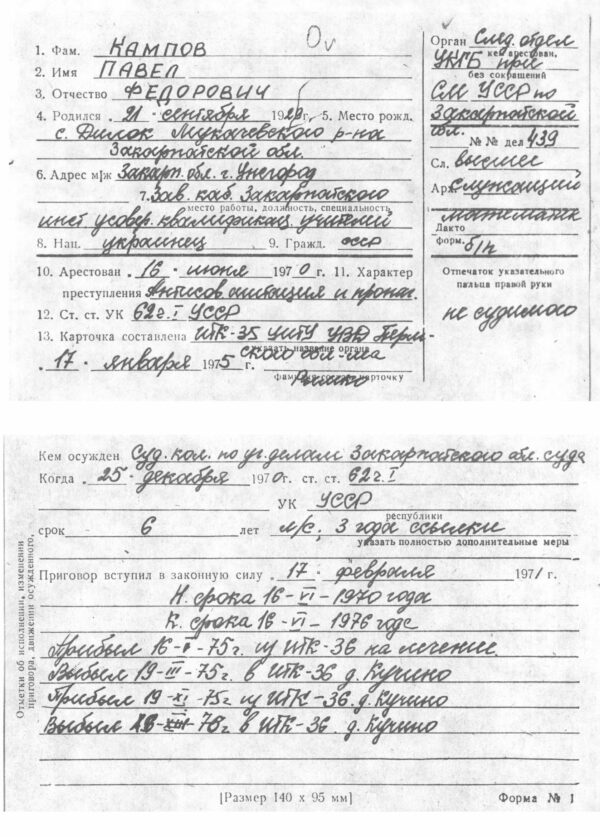 1. Фам. КАМПОВ
2. Имя ПАВЕЛ
3. Отчество ФЕДОРОВИЧ
4. Родился 21 · сентября 1929г. 5. Место рожд.
с. Дилок Мукачевского р-на
Закарпатской обл.
6. Адрес м/ж Закарп. обл. г. Ужгород
7. Зав. каб. Закарпатского
место работы, должность, специальность
инст усовер. квалификац. учителей
8. Нац. украинец 9. Гражд. СССР
10. Арестован 16 · июня 1970 г. 11. Характер
преступления Антисов агитация и пропаг.
12. Ст. ст. УК 62 ч. I УССР
13. Карточка составлена ИТК-35 УИТУ УВД Перм-
указать название органа
ской обл-та
17 · января 1975 г.
фамилия состав. карточку
Орган След. отдел
кем арестован,
УКГБ при
без сокращений
СМ УССР по
Закарпатской
обл.
№ № дел 439
Сл. высшее
Арх. служащий
математик
Дакто
форм. б/п
Отпечаток указательного
пальца правой руки
не судимого
Кем осужден Суд. кол. по уг. делам Закарпатского обл. суда
Когда 25 · декабря 1970г. ст. ст. 62 ч. I
УК УССР
республики
срок 6 лет л/с; 3 года ссылки
указать полностью дополнительные меры
Приговор вступил в законную силу 17 · февраля 1971 г.
Н. срока 16-VI-1970 года
К. срока 16-VI-1976 года
Прибыл 16-I-75г. из ИТК-36 на лечение
Выбыл 19-III-75г. в ИТК-36 д. Кучино
Прибыл 19-XI-75г из ИТК-36 д. Кучино
Выбыл в ИТК-36 д. Кучино
Отметки об исполнении, изменении
приговора, движении осужденного,
[Размер 140 х 95 мм] Форма № 1